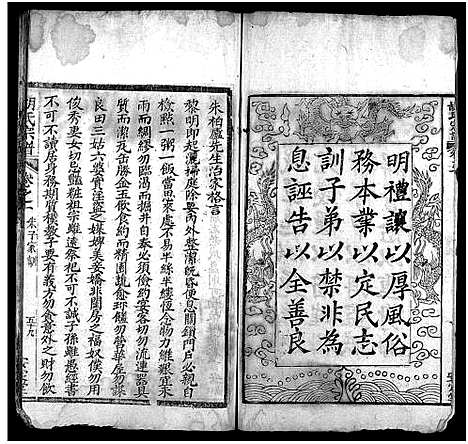 明禮讓以厚風俗
務本業以定民志
訓子弟以禁非為
息誣告以全善良
朱柏廬先生治家格言
黎明即起灑掃庭除要內外整潔既昏便息關鎖門戶必親自
檢點一粥一飯當思來處不易半絲半縷恆念物力維艱宜未
雨而綢繆勿臨渴而掘井自奉必須儉約宴客切勿流連器具
質而潔瓦缶勝金玉飲食約而精園蔬愈珍饈勿營華屋勿謀
良田三姑六婆實淫盜之媒婢美妾嬌非閨房之福奴僕勿用
俊秀妻女切忌艷粧祖宗雖遠祭祀不可不誠子孫雖愚經書
不可不讀居身務期質樸敎子要有義方勿貪意外之財勿飲
胡氏宗譜
卷之二
朱子家訓
五十九